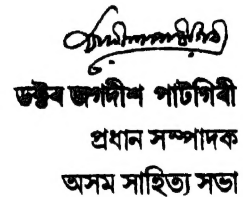 ডক্টৰ জগদীশ পাটগিৰী
প্ৰধান সম্পাদক
অসম সাহিত্য সভা